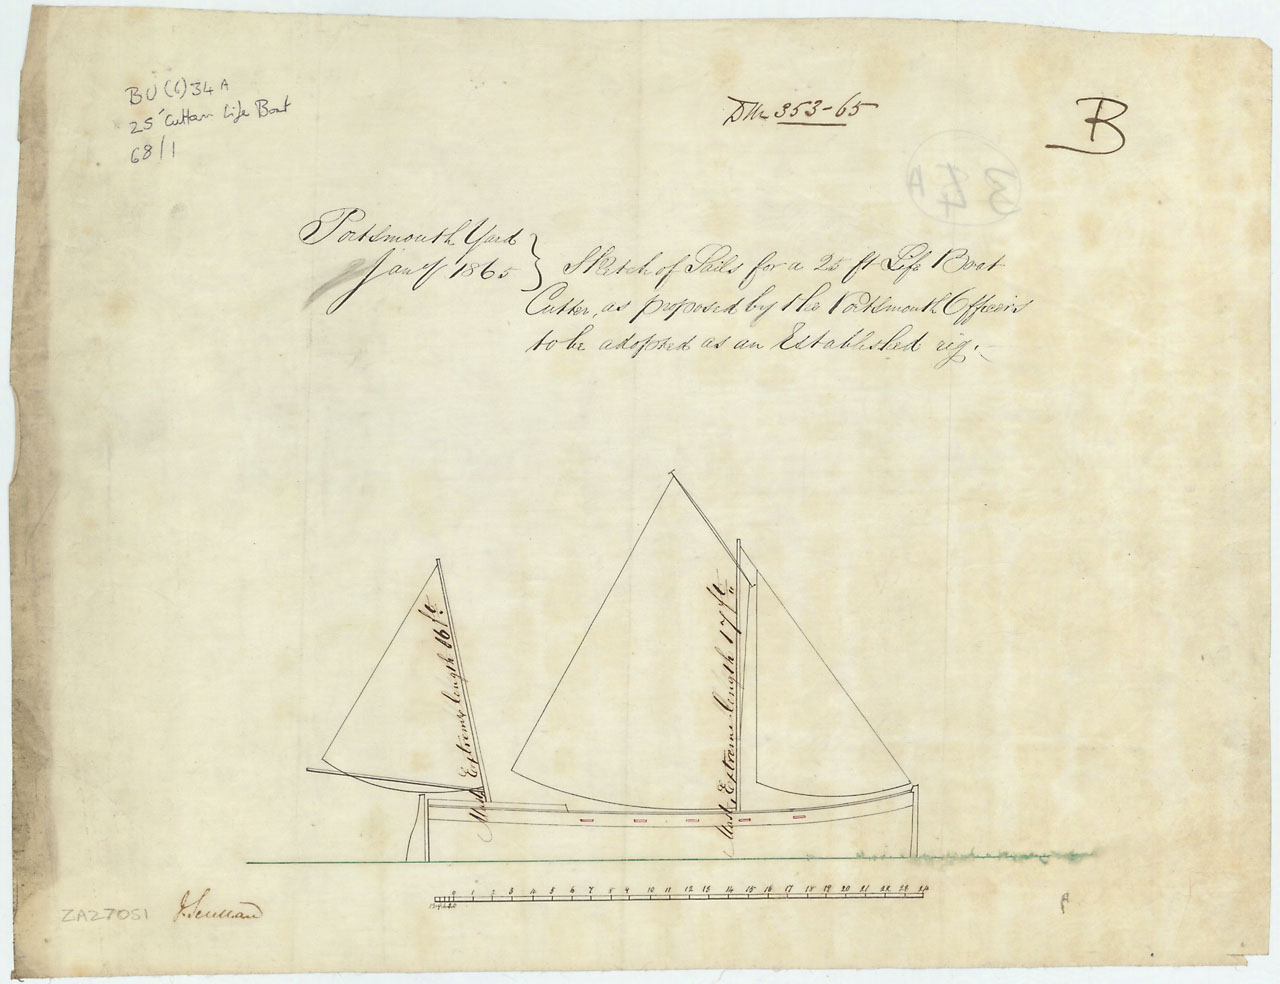 BU(6)34A
25' Cuttam Life Boat
68/1
353-65
B
34A
Portsmouth Yard
Jany 1865
Sketch of Sails for a 25 ft Life Boat
Cutter, as proposed by the Portsmouth Officers
to be adopted as an Established rig.
Mast, Extreme length 16 ft.
Mast, Extreme length 17 ft.
0 1 2 3 4 5 6 7 8 9 10 11 12 13 14 15 16 17 18 19 20 21 22 23 24
ZA27051
A